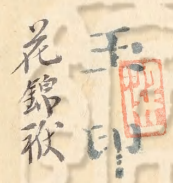 玉印
花錦袱